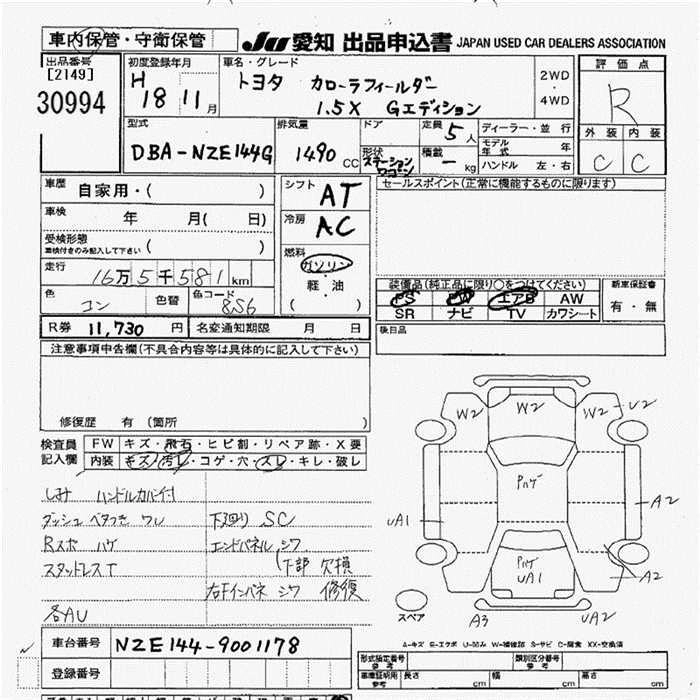 車内保管・守衛保管
JU 愛知 出品申込書 JAPAN USED CAR DEALERS ASSOCIATION
出品番号
[2149]
30994
初度登録年月
H 18 11月
車名・グレード
トヨタ カローラフィールダー
1.5X Gエディション
2WD
4WD
評価点
R
外装 内装
C C
型式
DBA-NZE144G
排気量
1490 CC
ドア
形状
ステーション
ワゴン
定員 5人
積載 - kg
ディーラー・並行
モデル年式 年
ハンドル 左・右
車歴 自家用・( )
車検 年 月( 日)
受検形態
車検付きのみ記入して下さい ( )
走行
16万5千581km
色 コン 色替 色コード 8S6
R券 11,730円 名変通知期限 月 日
シフト AT
冷房 AC
燃料
ガソリン
軽・油
( )
セールスポイント(正常に機能するものに限ります)
装備品(純正品に限り○をつけてください)
PS PW エアB AW
SR ナビ TV カワシート
新車保証書
有・無
後日品
注意事項申告欄(不具合内容等は具体的に記入して下さい)
修復歴 有 (箇所 )
検査員
記入欄
FW キズ・飛石・ヒビ割・リペア跡・X要
内装 キズ・汚レ・コゲ・穴・スレ・キレ・破レ
しみ ハンドルカバー付
ダッシュ ベタつき ワレ 下廻り SC
Rスポ ハゲ エンドパネル シワ
スタッドレスT (下部 欠損
右Fインパネ シワ 修復
各AU
W2 W2 W2 U2
ハゲ
A2
UA1
ハゲ
UA1
A2
A3 UA2
スペア
A-キズ E-エクボ U-凹み W-補修跡 S-サビ C-腐食 XX-交換済
車台番号 NZE144-9001178
登録番号
形式指定番号
参考
類別区分番号
参考
車庫証明用
参考
長さ cm 幅 cm 高さ cm